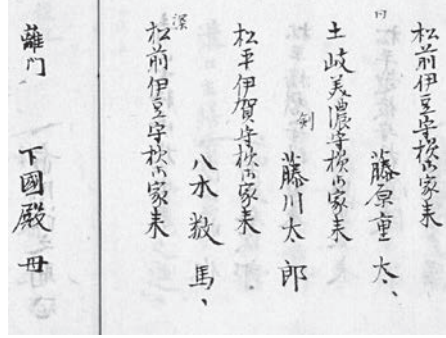 松前伊豆守様御家来
同
藤原重太、
土岐美濃守様御家来
剣
藤川太郎
松平伊賀守様御家来
八木数馬、
深
松前伊豆守様御家来
離門
下國殿 毌